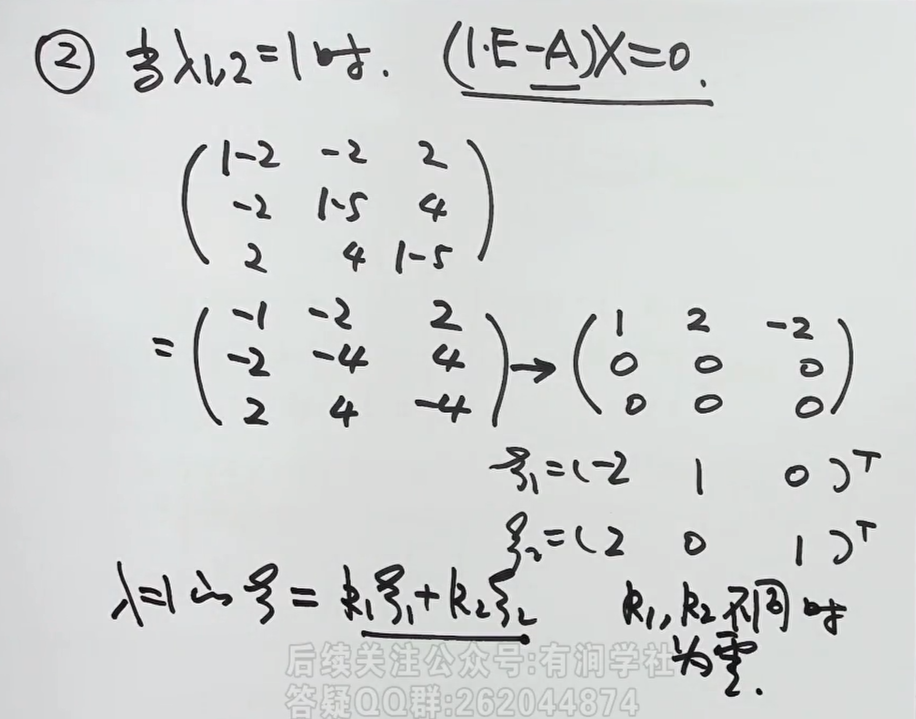 ② 当λ1,2=1时. (1·E-A)X=0.
1-2 -2 2
-2 1-5 4
2 4 1-5
= ( -1 -2 2 ) → ( 1 2 -2 )
-2 -4 4 0 0 0
2 4 -4 0 0 0
ξ1=(-2 1 0)T
ξ2=(2 0 1)T
λ=1的ξ = k1ξ1+k2ξ2 k1,k2不同时
为零.
后续关注公众号:有涧学社
答疑QQ群:262044874